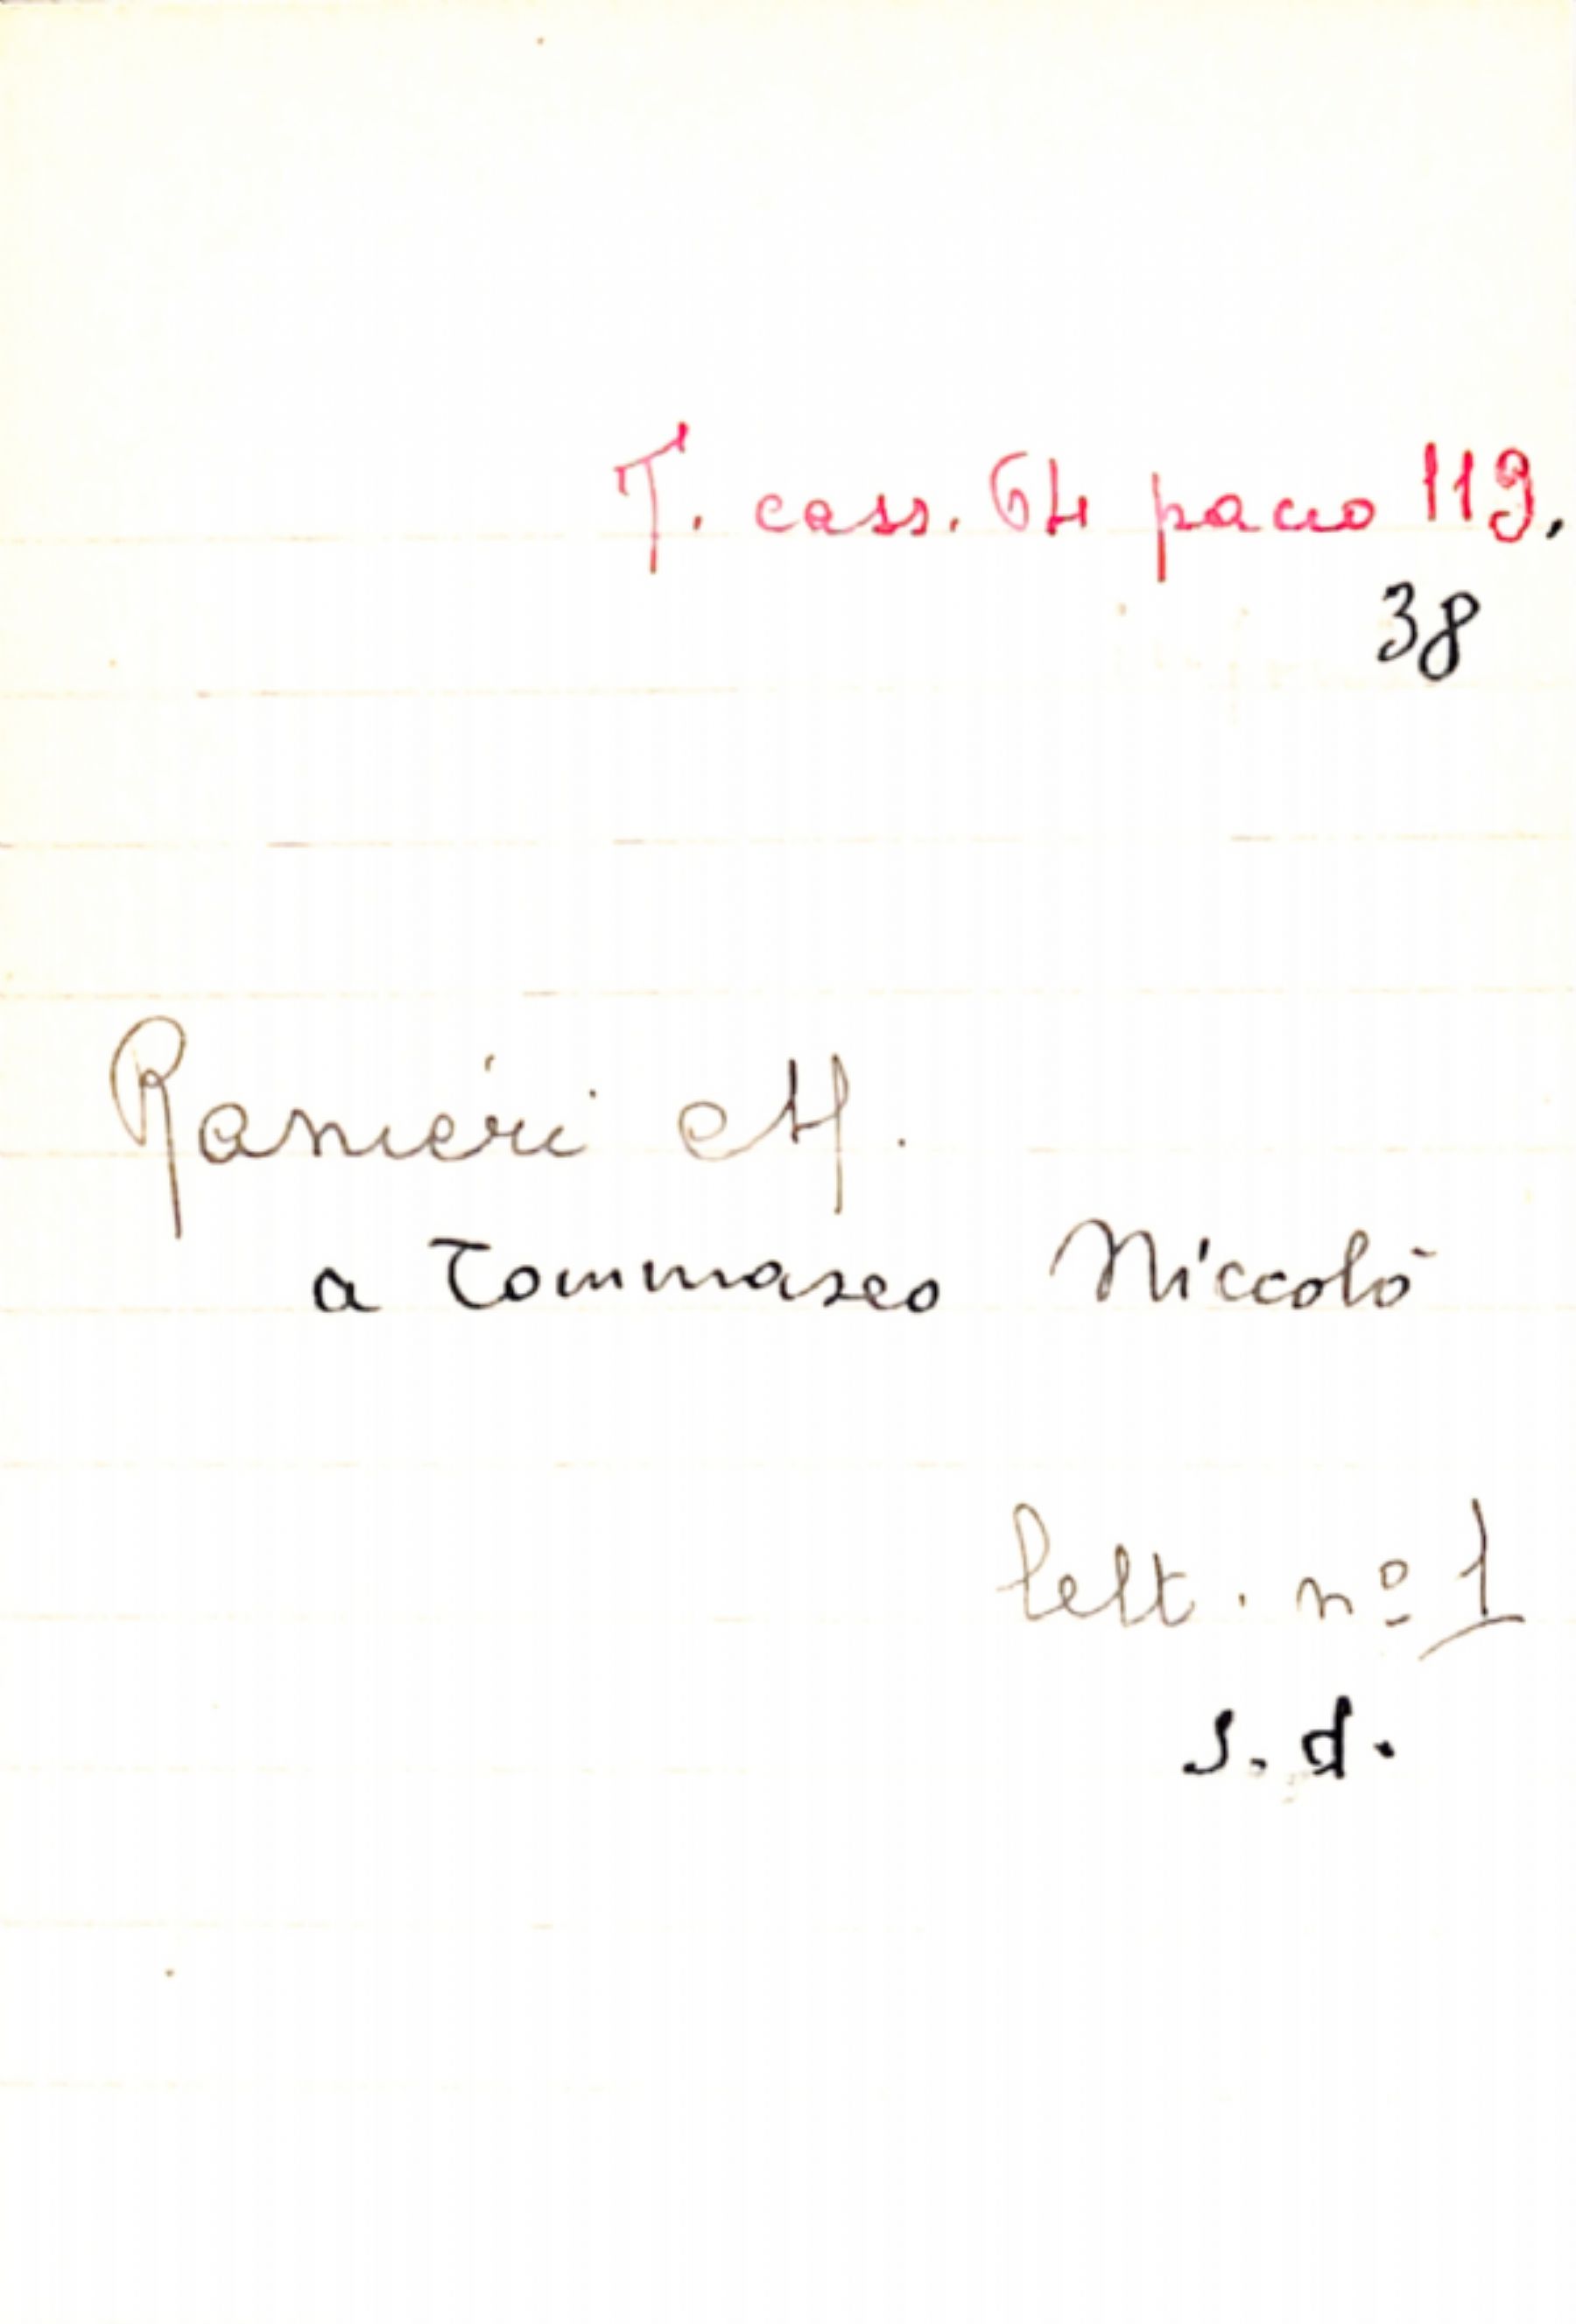 T. cass. 64 pacco 119.
38
Ranieri M.
a Tommaseo Niccolò
lett. nº 1
s. d.